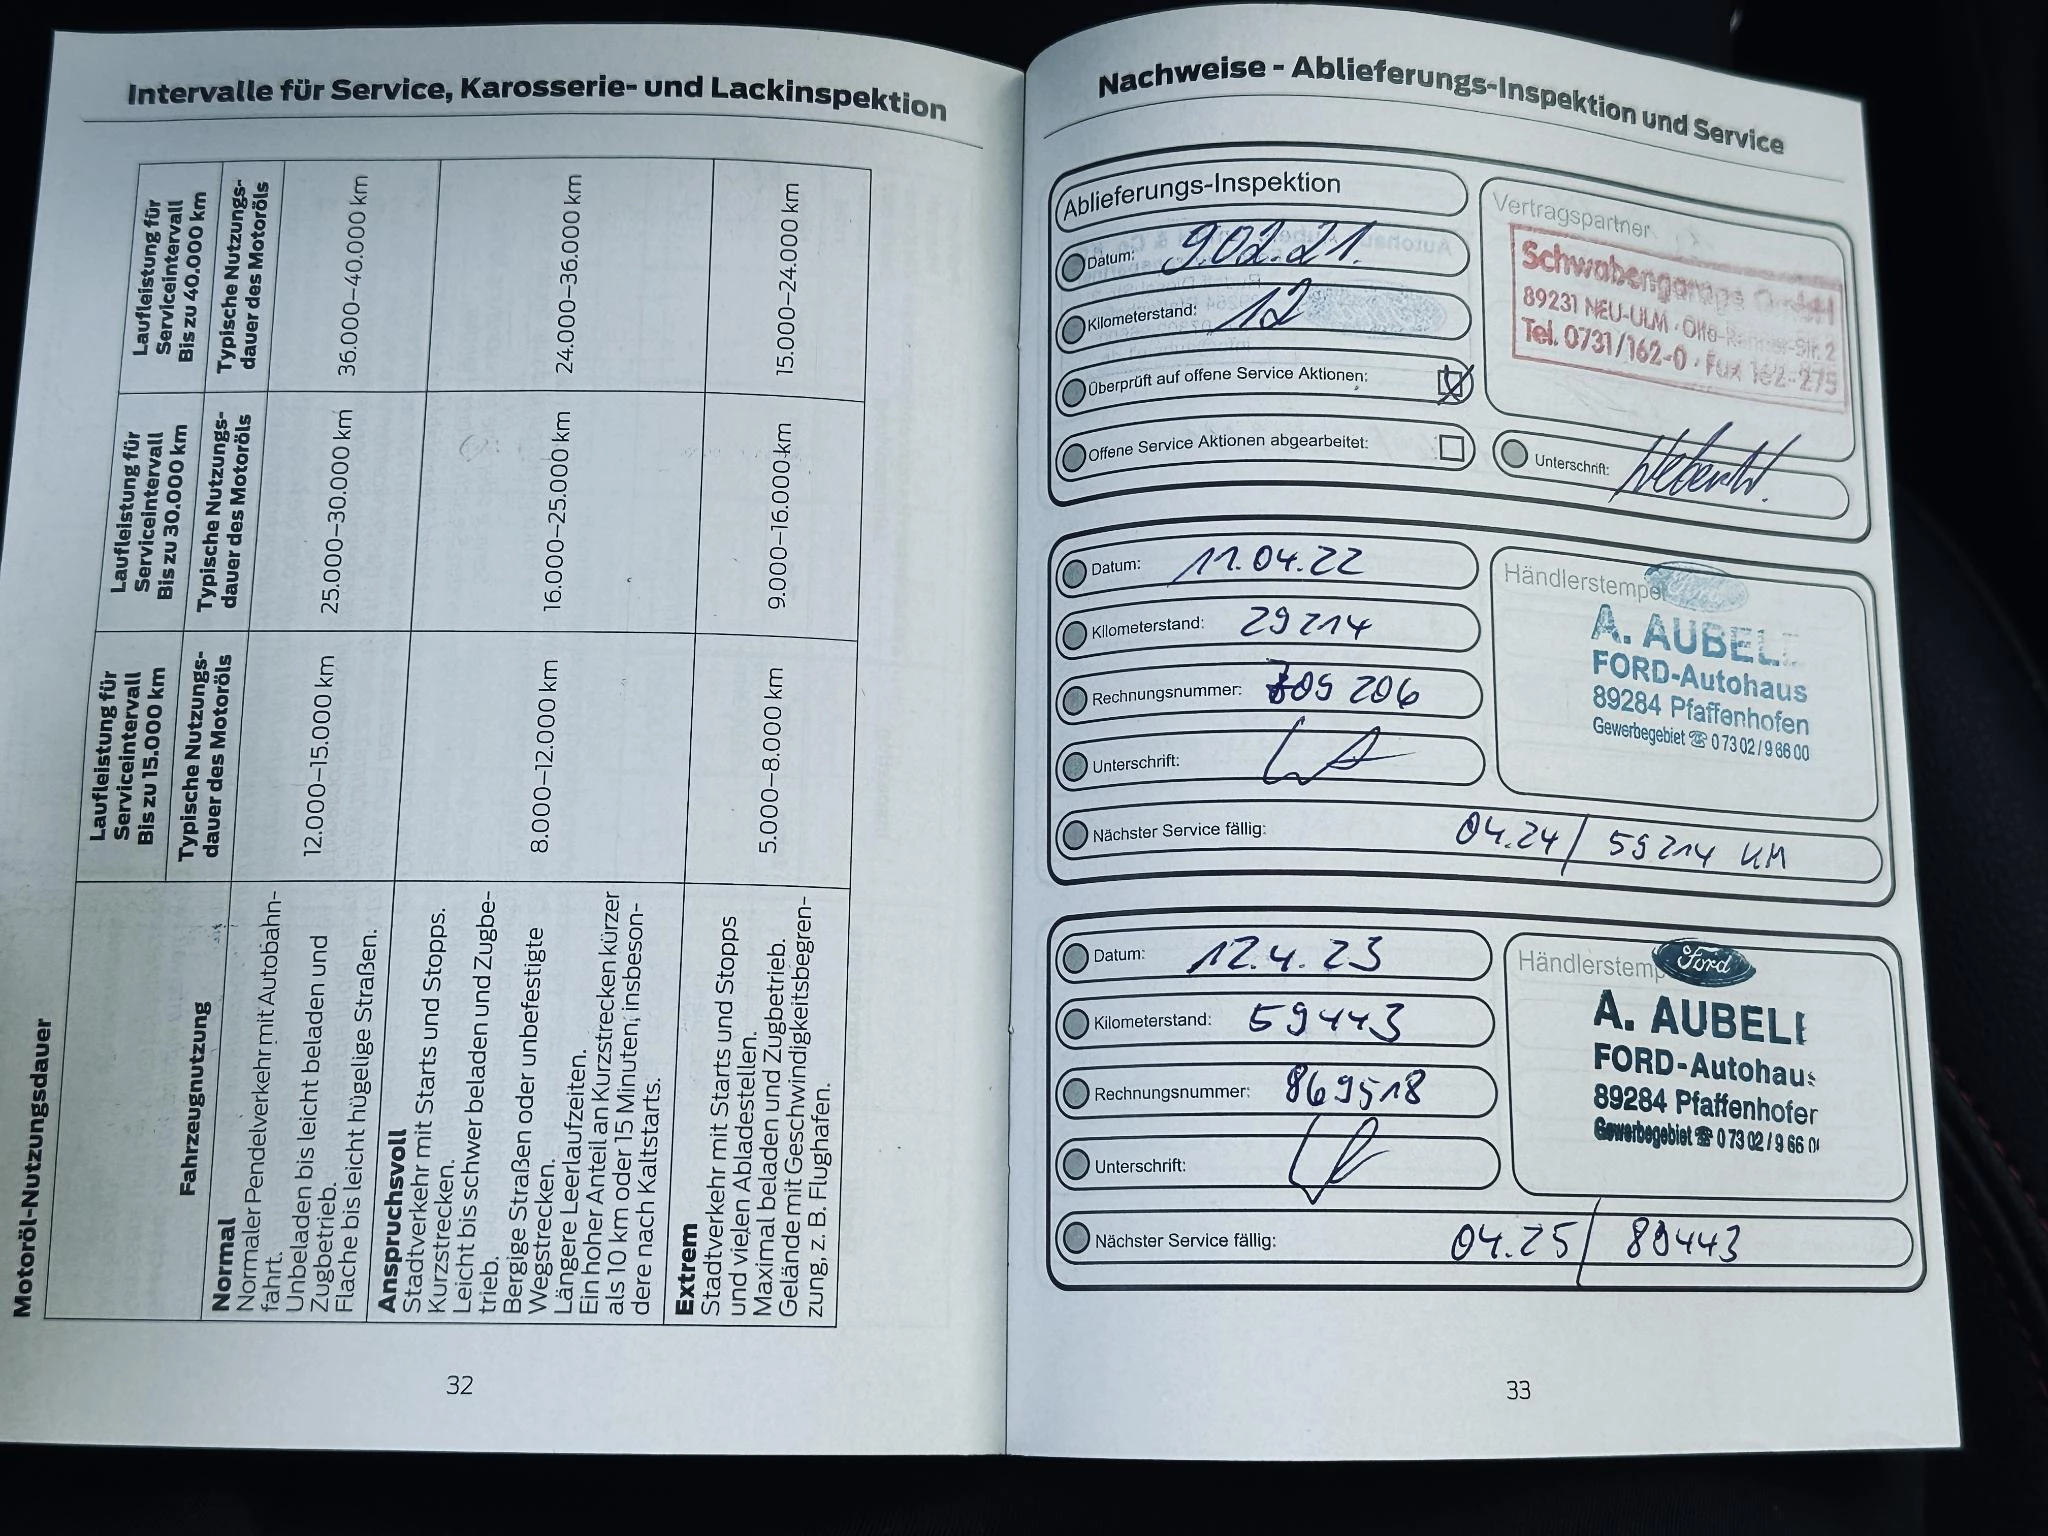 Intervalle für Service, Karosserie- und Lackinspektion
Motoröl-Nutzungsdauer
Fahrzeugnutzung
Laufleistung für
Serviceintervall
Bis zu 15.000 km
Laufleistung für
Serviceintervall
Bis zu 30.000 km
Laufleistung für
Serviceintervall
Bis zu 40.000 km
Typische Nutzungs-
dauer des Motoröls
Typische Nutzungs-
dauer des Motoröls
Typische Nutzungs-
dauer des Motoröls
Normal
Normaler Pendelverkehr mit Autobahn-
fahrt.
Unbeladen bis leicht beladen und
Zugbetrieb.
Flache bis leicht hügelige Straßen.
12.000–15.000 km
25.000–30.000 km
36.000–40.000 km
Anspruchsvoll
Stadtverkehr mit Starts und Stopps.
Kurzstrecken.
Leicht bis schwer beladen und Zugbe-
trieb.
Bergige Straßen oder unbefestigte
Wegstrecken.
Längere Leerlaufzeiten.
Ein hoher Anteil an Kurzstrecken kürzer
als 10 km oder 15 Minuten, insbeson-
dere nach Kaltstarts.
8.000–12.000 km
16.000–25.000 km
24.000–36.000 km
Extrem
Stadtverkehr mit Starts und Stopps
und vielen Abladestellen.
Maximal beladen und Zugbetrieb.
Gelände mit Geschwindigkeitsbegren-
zung, z. B. Flughafen.
5.000–8.000 km
9.000–16.000 km
15.000–24.000 km
32
Nachweise - Ablieferungs-Inspektion und Service
Ablieferungs-Inspektion
Datum: 9.02.21.
Kilometerstand: 12
Überprüft auf offene Service Aktionen:
Offene Service Aktionen abgearbeitet:
Vertragspartner
Schwabengarage GmbH
89231 NEU-ULM · Otto-Renner-Str. 2
Tel. 0731/162-0 · Fax 162-275
Unterschrift:
Datum: 11.04.22
Kilometerstand: 29214
Rechnungsnummer: 809 206
Unterschrift:
Nächster Service fällig: 04.24 / 59214 KM
Händlerstempel
Ford
A. AUBEL
FORD-Autohaus
89284 Pfaffenhofen
Gewerbegebiet ☎ 0 73 02 / 9 66 00
Datum: 12.4.23
Kilometerstand: 59443
Rechnungsnummer: 869518
Unterschrift:
Nächster Service fällig: 04.25 / 89443
Händlerstemp
Ford
A. AUBEL
FORD-Autohaus
89284 Pfaffenhofer
Gewerbegebiet ☎ 0 73 02 / 9 66 0
33